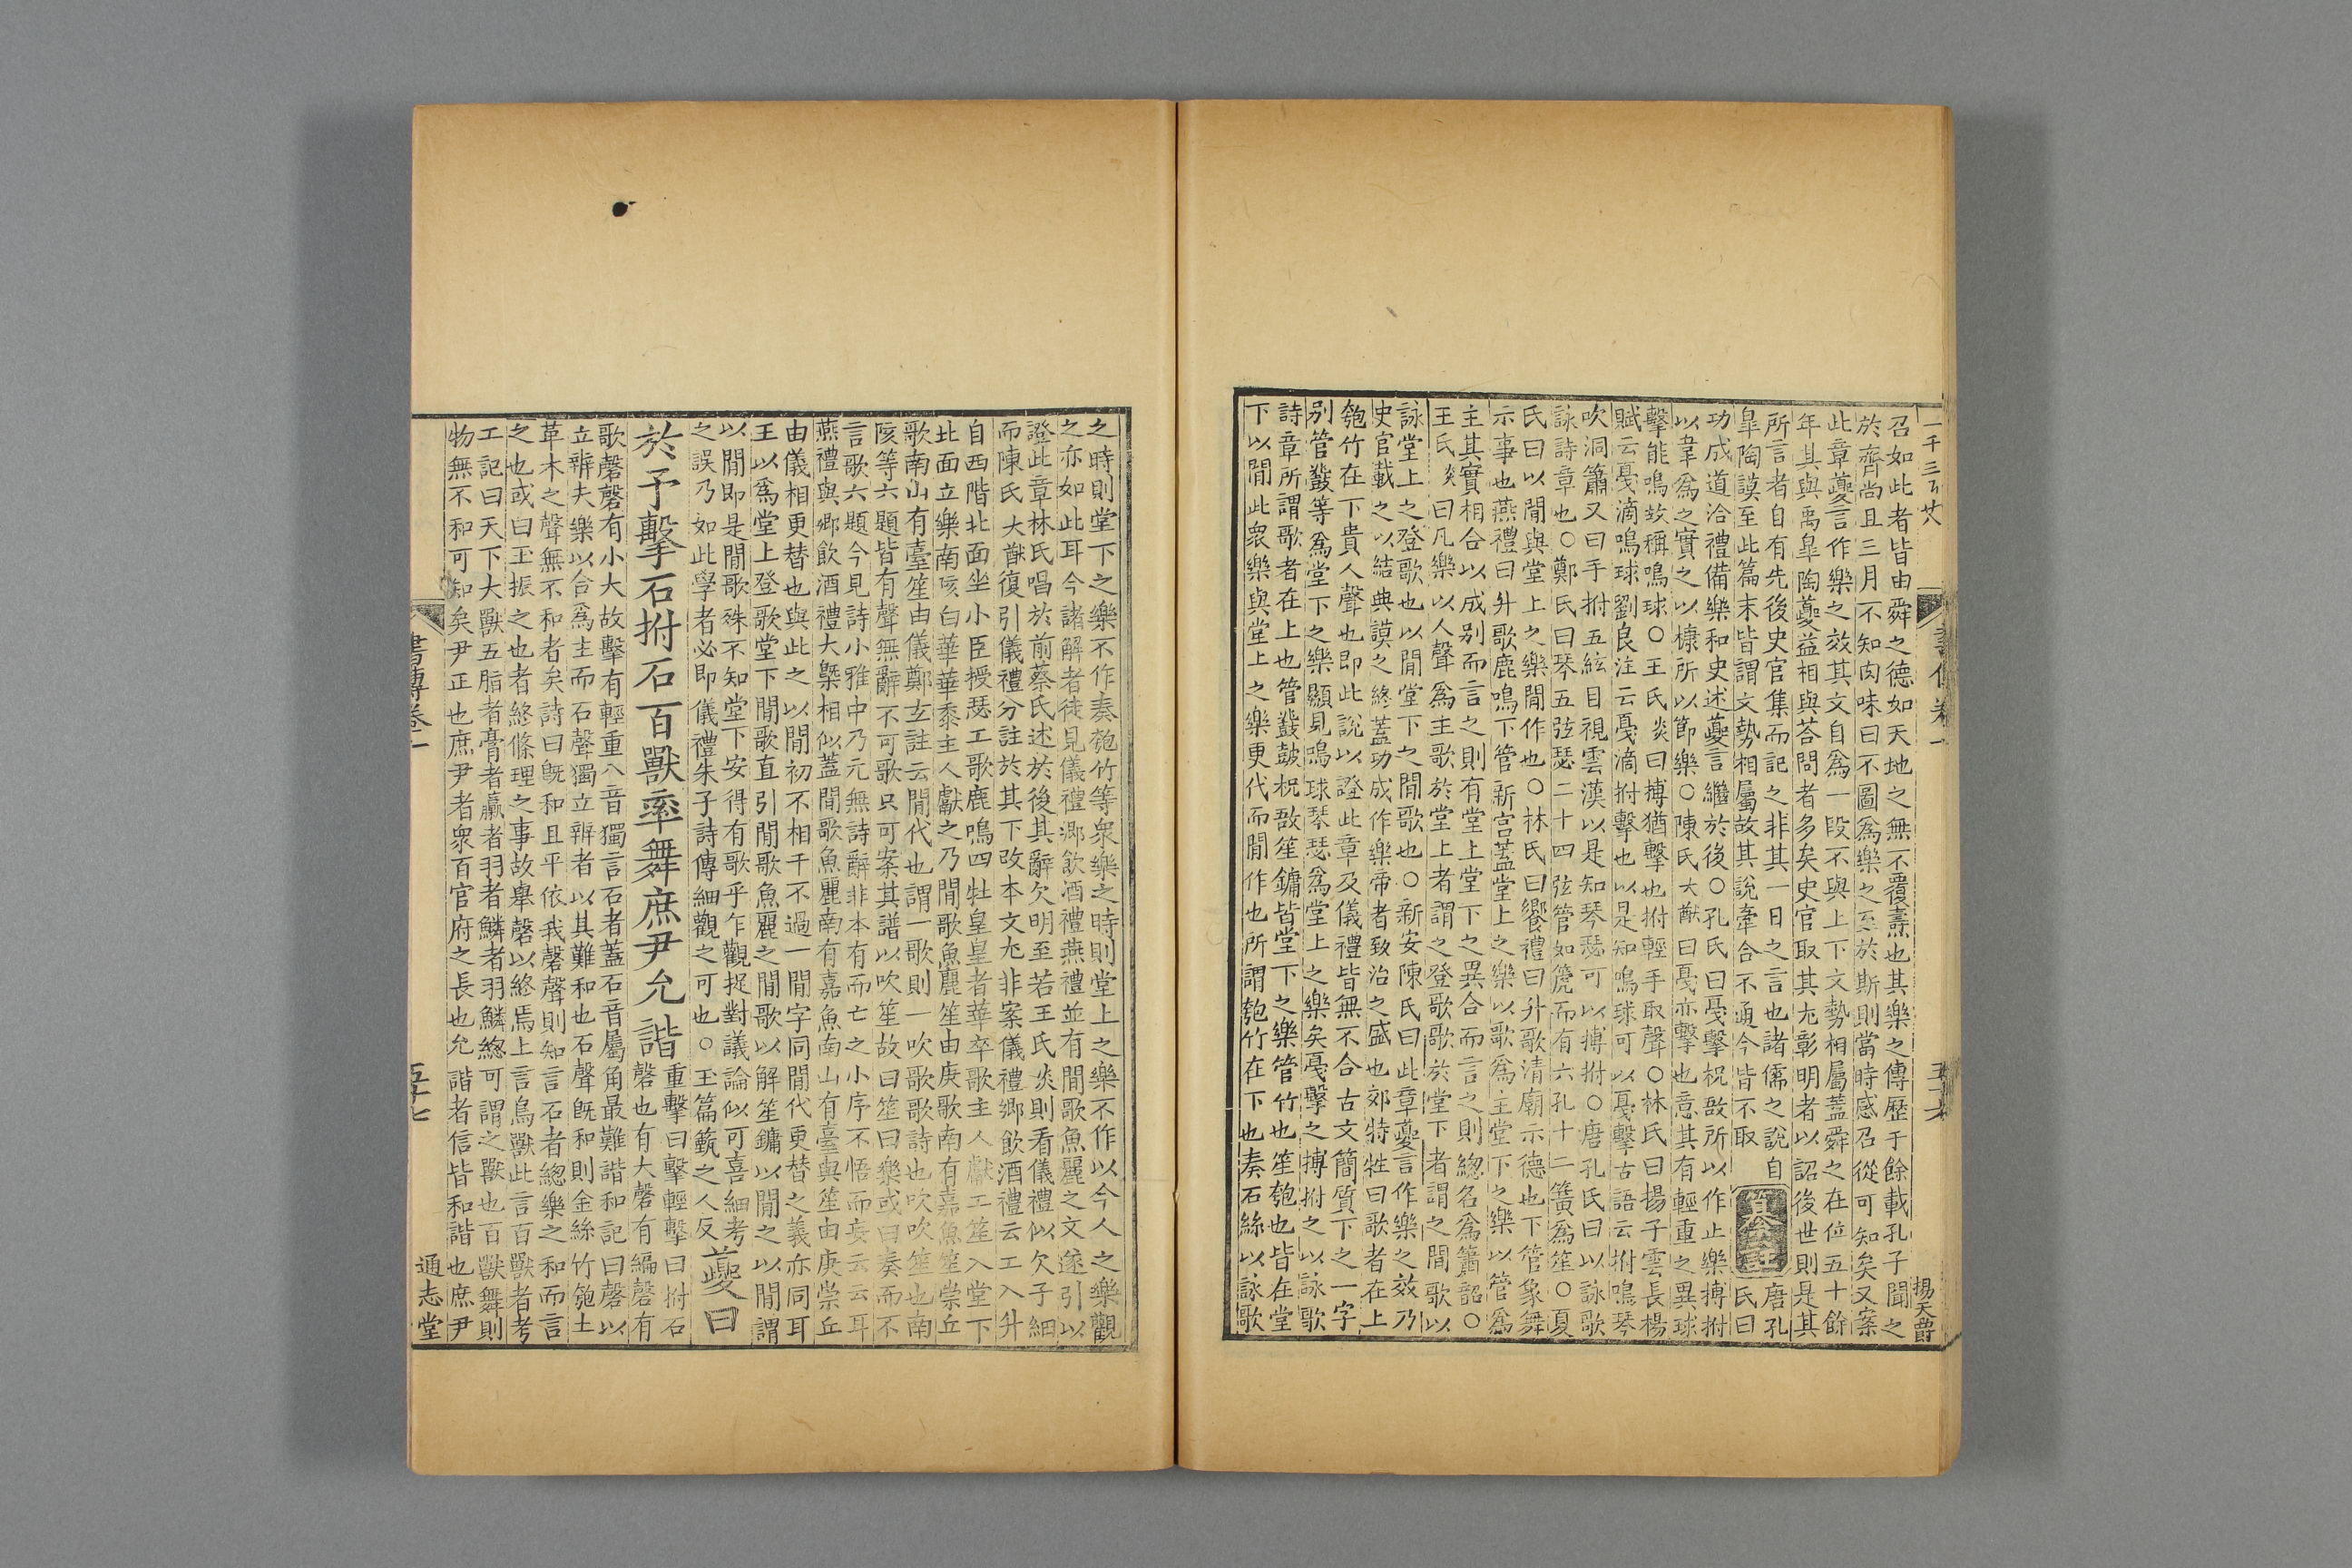 一千三百廿八
書傳卷一
五十六
楊天爵
召如此者皆由舜之德如天地之無不覆燾也其樂之傳歷于餘載孔子聞之
於齊尚且三月不知肉味曰不圖爲樂之至於斯則當時感召從可知矣又案
此章夔言作樂之效其文自爲一段不與上下文勢相屬蓋舜之在位五十餘
年其與禹皐陶夔益相與荅問者多矣史官取其尤彰明者以詔後世則是其
所言者自有先後史官集而記之非其一日之言也諸儒之說自
皐陶謨至此篇末皆謂文勢相屬故其說牽合不通今皆不取
唐孔氏曰
功成道洽禮備樂和史述夔言繼於後○孔氏曰戞擊柷敔所以作止樂搏拊
以韋爲之實之以糠所以節樂○陳氏大猷曰戞亦擊也意其有輕重之異球
擊能鳴故稱鳴球○王氏炎曰搏猶擊也拊輕手取聲○林氏曰揚子雲長楊
賦云戞滴鳴球劉良注云戞滴拊擊也以是知鳴球可以戞擊古語云拊鳴琴
吹洞簫又曰手拊五絃目視雲漢以是知琴瑟可以搏拊○唐孔氏曰以詠歌
詠詩章也○鄭氏曰琴五弦瑟二十四弦管如篪而有六孔十二簧爲笙○夏
氏曰以間與堂上之樂間作也○林氏曰饗禮曰升歌清廟示德也下管象舞
示事也燕禮曰升歌鹿鳴下管新宮蓋堂上之樂以歌爲主堂下之樂以管爲
主其實相合以成别而言之則有堂上堂下之異合而言之則總名爲簫韶○
王氏炎曰凡樂以人聲爲主歌於堂上者謂之登歌歌於堂下者謂之間歌以
詠堂上之登歌也以間堂下之間歌也○新安陳氏曰此章夔言作樂之效乃
史官載之以結典謨之終蓋功成作樂帝者致治之盛也郊特牲曰歌者在上
匏竹在下貴人聲也即此說以證此章及儀禮皆無不合古文簡質下之一字
别管鼗等爲堂下之樂顯見鳴球琴瑟爲堂上之樂矣戞擊之搏拊之以詠歌
詩章所謂歌者在上也管鼗鼓柷敔笙鏞皆堂下之樂管竹也笙匏也皆在堂
下以間此衆樂與堂上之樂更代而間作也所謂匏竹在下也奏石絲以詠歌
之時則堂下之樂不作奏匏竹等衆樂之時則堂上之樂不作以今人之樂觀
之亦如此耳今諸解者徒見儀禮鄉飲酒禮燕禮並有間歌魚麗之文遂引以
證此章林氏唱於前蔡氏述於後其辭欠明至若王氏炎則看儀禮似欠子細
而陳氏大猷復引儀禮分註於其下改本文尤非案儀禮鄉飲酒禮云工入升
自西階北面坐小臣授瑟工歌鹿鳴四牡皇皇者華卒歌主人獻工笙入堂下
北面立樂南陔白華華黍主人獻之乃間歌魚麗笙由庚歌南有嘉魚笙崇丘
歌南山有臺笙由儀鄭玄註云間代也謂一歌則一吹歌歌詩也吹吹笙也南
陔等六題皆有聲無辭不可歌只可案其譜以吹笙故曰笙曰樂或曰奏而不
言歌六題今見詩小雅中乃元無詩辭非本有而亡之小序不悟而妄云云耳
燕禮與鄉飲酒禮大槩相似蓋間歌魚麗南有嘉魚南山有臺與笙由庚崇丘
由儀相更替也與此之以間初不相干不過一間字同間代更替之義亦同耳
王以爲堂上登歌堂下間歌直引間歌魚麗之間歌以解笙鏞以間之以間謂
以間即是間歌殊不知堂下安得有歌乎乍觀捉對議論似可喜細考
之誤乃如此學者必即儀禮朱子詩傳細觀之可也○玉篇籈之人反
夔曰
於予擊石拊石百獸率舞庶尹允諧
重擊曰擊輕擊曰拊石
磬也有大磬有編磬有
歌磬磬有小大故擊有輕重八音獨言石者蓋石音屬角最難諧和記曰磬以
立辨夫樂以合爲主而石聲獨立辨者以其難和也石聲既和則金絲竹匏土
革木之聲無不和者矣詩曰既和且平依我磬聲則知言石者總樂之和而言
之也或曰玉振之也者終條理之事故舉磬以終焉上言鳥獸此言百獸者考
工記曰天下大獸五脂者膏者臝者羽者鱗者羽鱗總可謂之獸也百獸舞則
物無不和可知矣尹正也庶尹者衆百官府之長也允諧者信皆和諧也庶尹
書傳卷一
五十七
通志堂